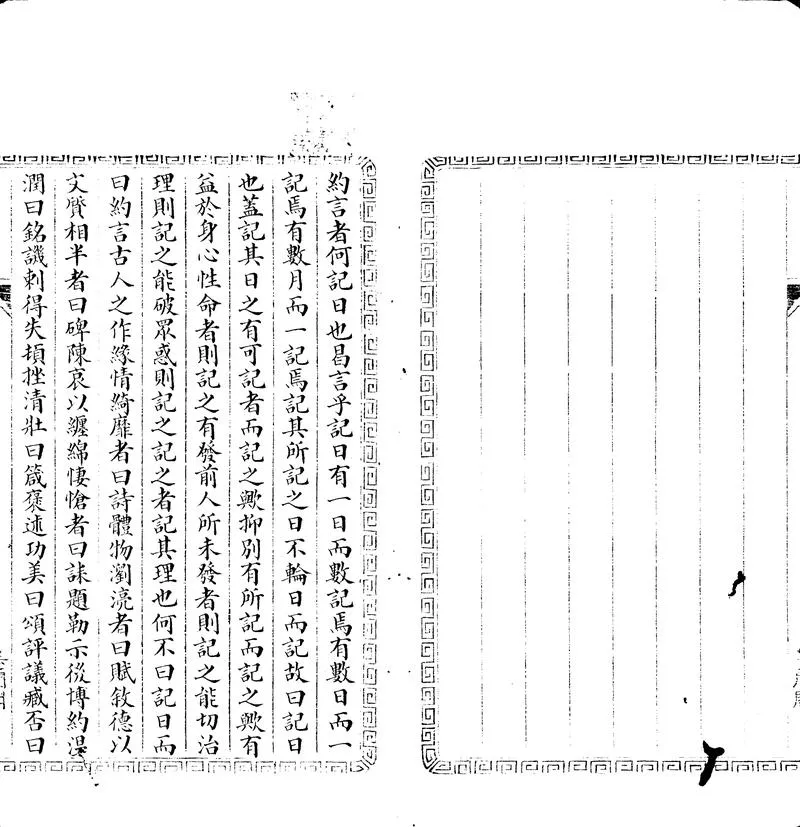 約言者何記日也昌言乎記日有一日而數記焉有數日而一
記焉有數月而一記焉記其所記之日不輪日而記故曰記日
也蓋記其日之有可記者而記之歟抑別有所記而記之歟有
益於身心性命者則記之有發前人所未發者則記之能切治
理則記之能破眾惑則記之記之者記其理也何不曰記日而
曰約言古人之作緣情綺靡者曰詩體物瀏湸者曰賦敘德以
文質相半者曰碑陳哀以纏綿悽愴者曰誄題勒示後博約温
潤曰銘譏刺得失頓挫清壯曰箴褒述功美曰頌評議臧否曰